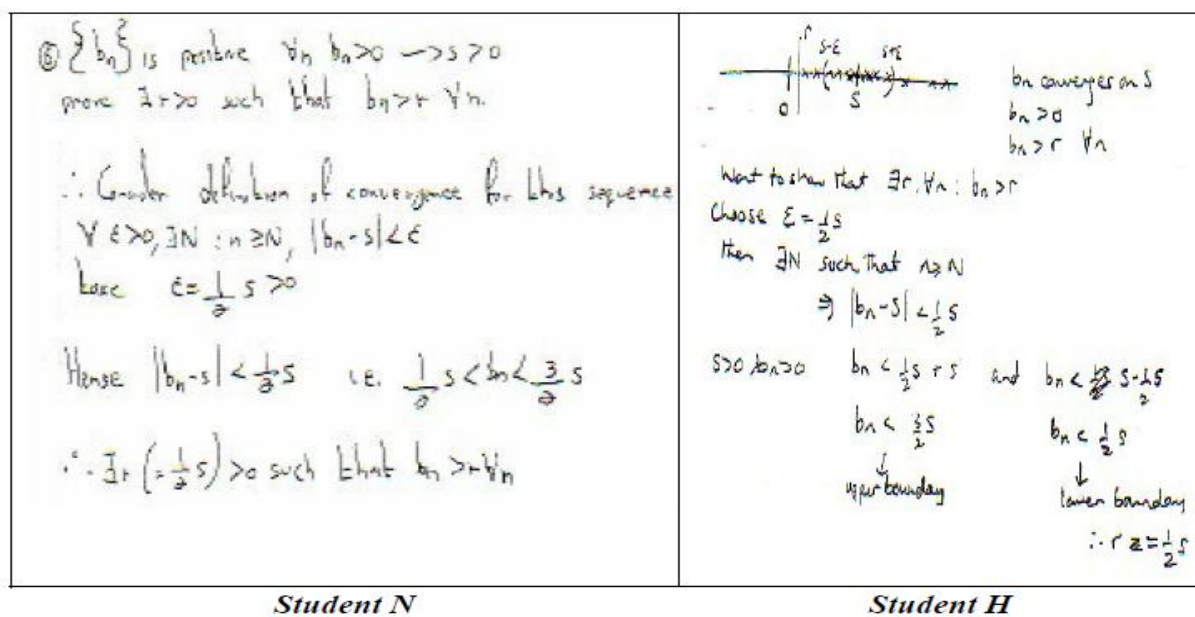 ⑥ {bn} is positive ∀n bn>0 → s>0
prove ∃r>0 such that bn>r ∀n.
∴ Consider definition of convergence for this sequence
∀ ε>0, ∃N : n≥N, |bn-s|<ε
take ε=1/2 s>0
Hense |bn-s|<1/2 s i.e. 1/2 s<bn<3/2 s
∴ ∃r (=1/2 s)>0 such that bn>r ∀n
Student N
r
s-ε s+ε
0 S
bn converges on S
bn>0
bn>r ∀n
Want to show that ∃r, ∀n : bn>r
Choose ε=1/2 s
then ∃N such that n≥N
⇒ |bn-S|<1/2 s
s>0 bn>0 bn<1/2 s+s and bn< s-1/2 s
bn<3/2 s bn<1/2 s
↓ ↓
upper boundary lower boundary
∴ r =1/2 s
Student H